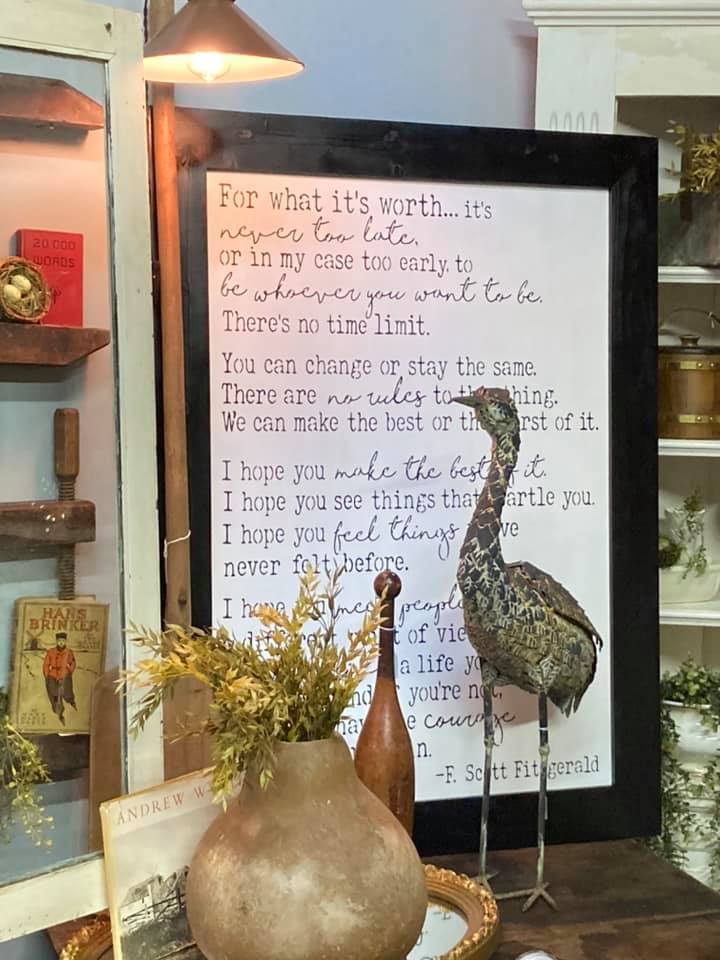 For what it's worth... it's
never too late,
or in my case too early, to
be whoever you want to be.
There's no time limit.
You can change or stay the same.
There are no rules to thing.
We can make the best or the rst of it.
I hope you make the best it.
I hope you see things that artle you.
I hope you feel things ve
never felt before.
I hope meet people
different of vie
a life yo
you're not,
courage
n.
-F. Scott Fitzgerald
20 000
WORDS
HANS
BRINKER
ANDREW W